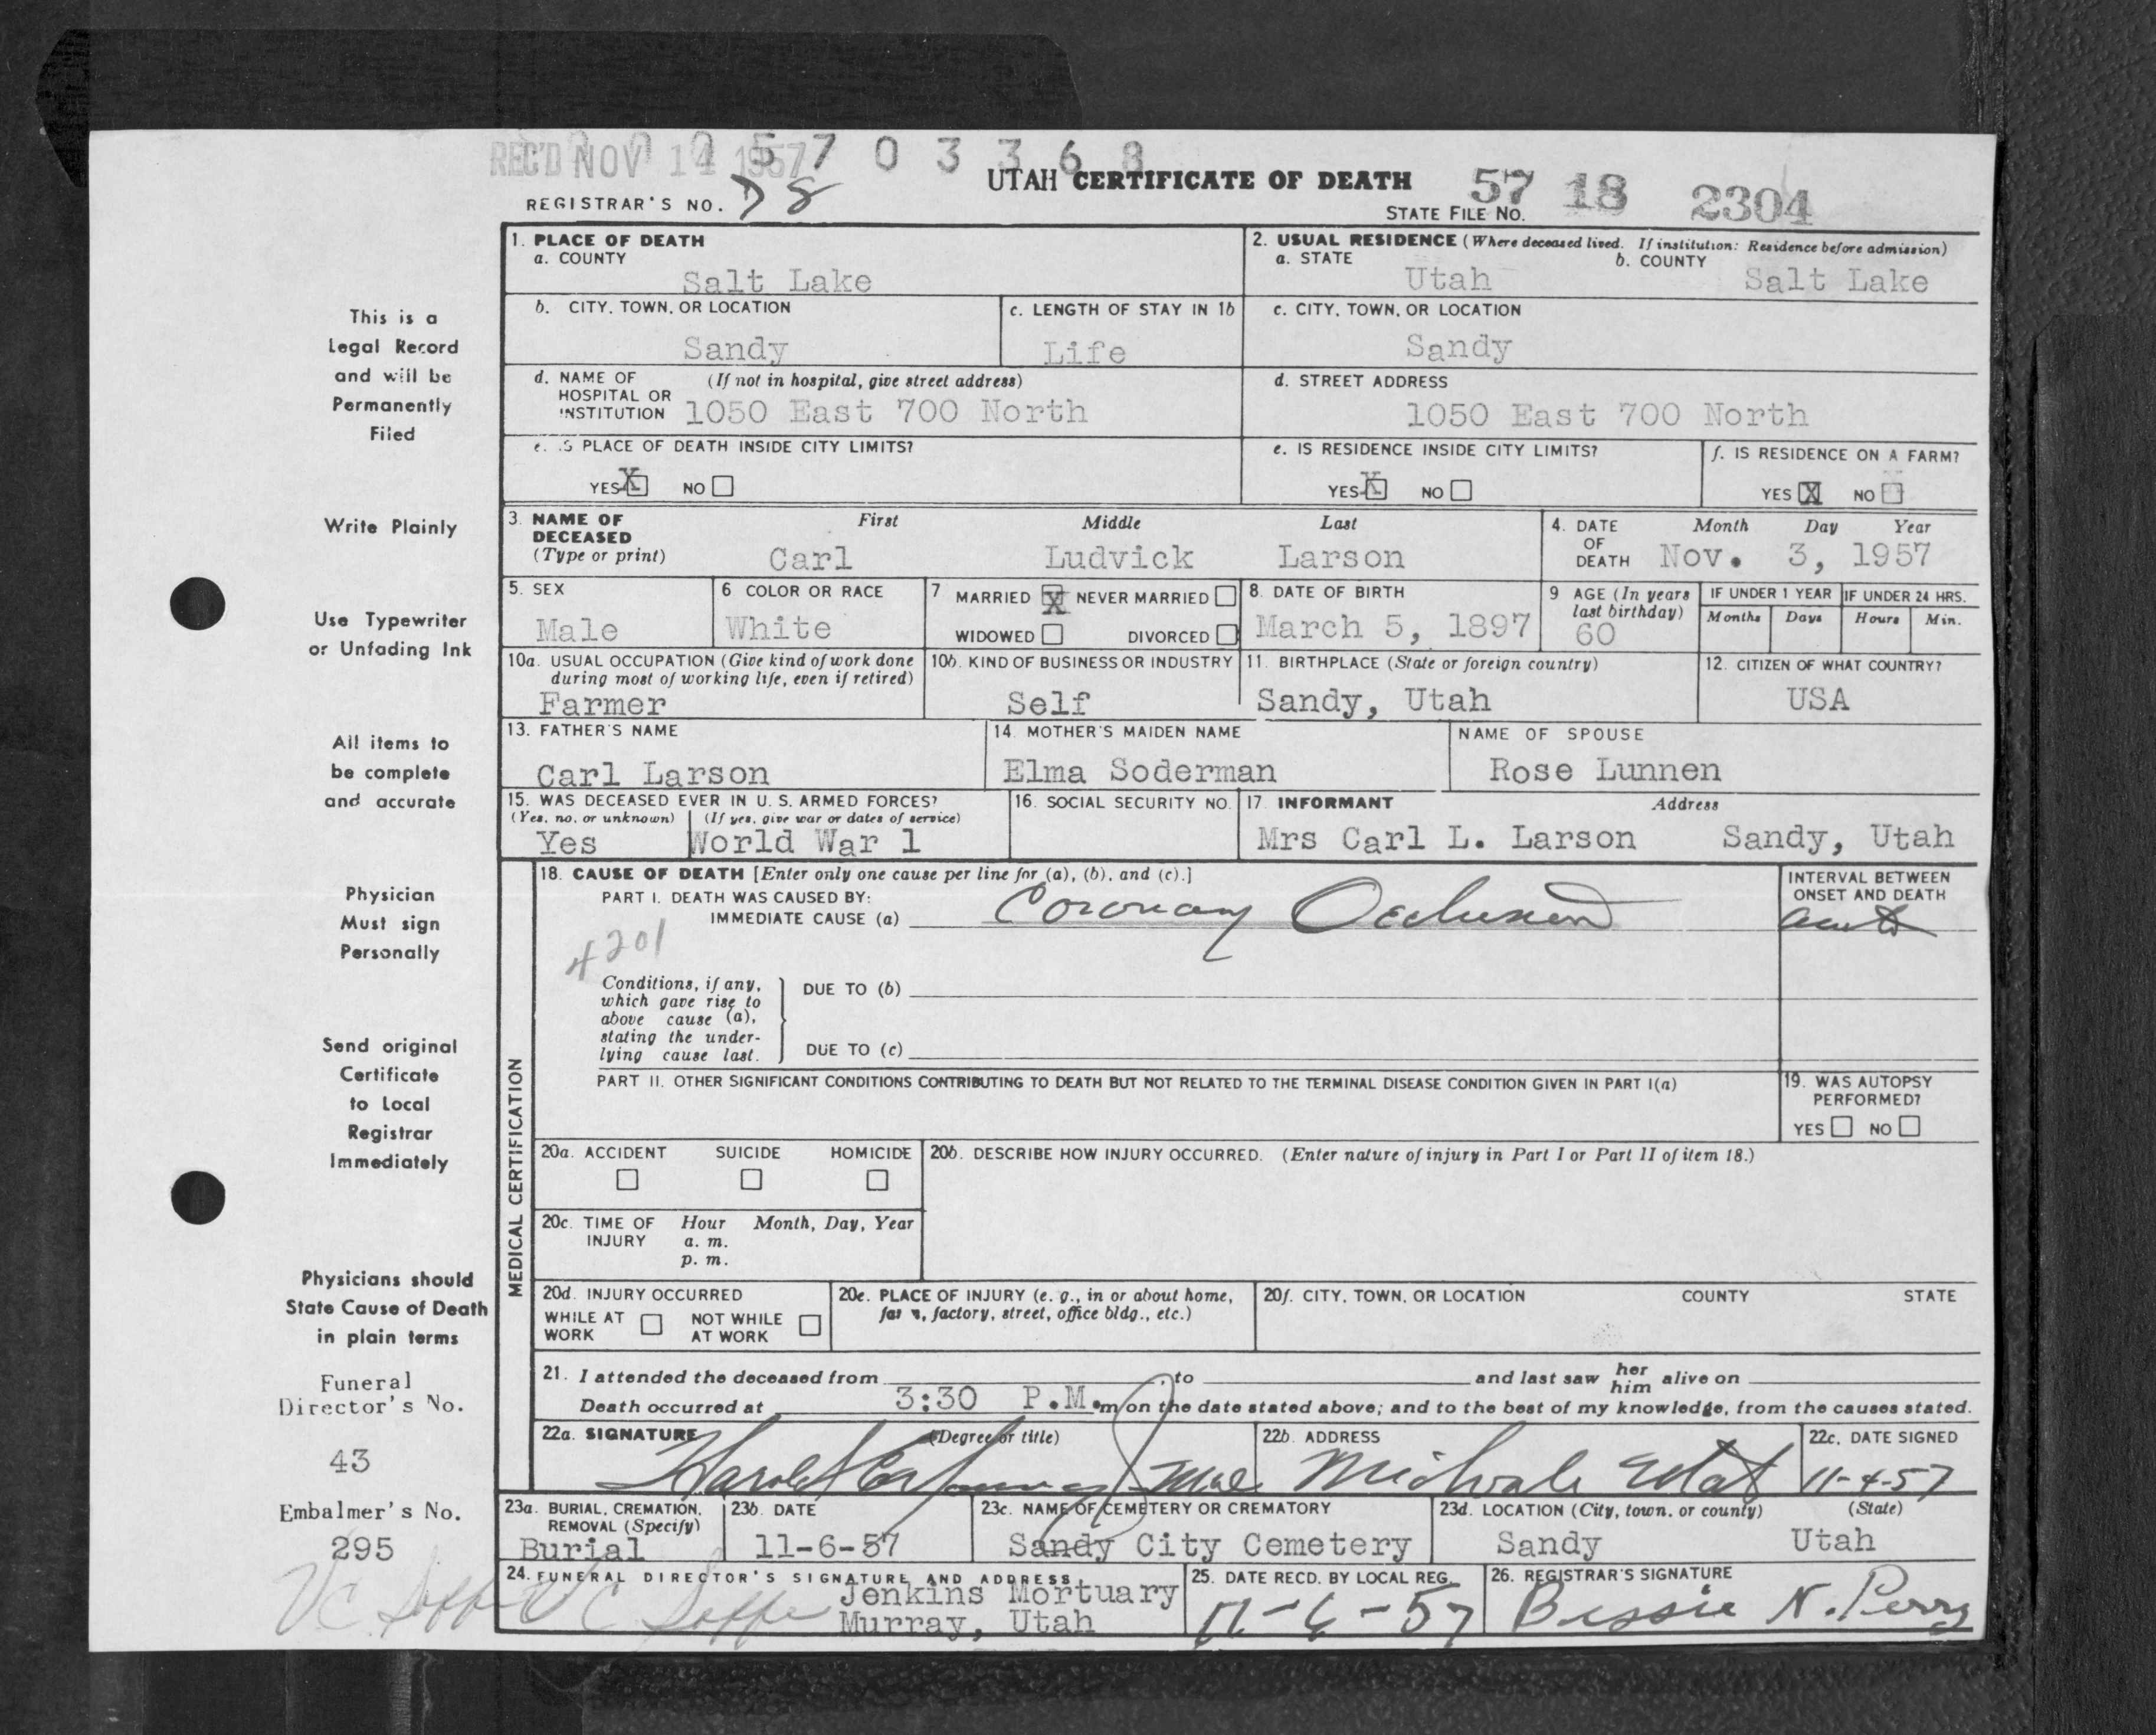 REC'D NOV 14 1957
5 7 0 3 3 6 8
UTAH CERTIFICATE OF DEATH
57 18 2304
REGISTRAR'S NO.
STATE FILE NO.
1. PLACE OF DEATH
a. COUNTY
Salt Lake
2. USUAL RESIDENCE (Where deceased lived. If institution: Residence before admission)
a. STATE Utah b. COUNTY Salt Lake
b. CITY, TOWN, OR LOCATION
Sandy
c. LENGTH OF STAY IN 1b
Life
c. CITY, TOWN, OR LOCATION
Sandy
d. NAME OF HOSPITAL OR INSTITUTION (If not in hospital, give street address)
1050 East 700 North
d. STREET ADDRESS
1050 East 700 North
e. IS PLACE OF DEATH INSIDE CITY LIMITS?
YES X NO
e. IS RESIDENCE INSIDE CITY LIMITS?
YES X NO
f. IS RESIDENCE ON A FARM?
YES X NO
3. NAME OF DECEASED (Type or print)
First Middle Last
Carl Ludvick Larson
4. DATE OF DEATH
Month Day Year
Nov. 3, 1957
5. SEX
Male
6 COLOR OR RACE
White
7 MARRIED X NEVER MARRIED
WIDOWED DIVORCED
8. DATE OF BIRTH
March 5, 1897
9 AGE (In years last birthday)
60
IF UNDER 1 YEAR
Months Days
IF UNDER 24 HRS.
Hours Min.
10a. USUAL OCCUPATION (Give kind of work done during most of working life, even if retired)
Farmer
10b. KIND OF BUSINESS OR INDUSTRY
Self
11. BIRTHPLACE (State or foreign country)
Sandy, Utah
12. CITIZEN OF WHAT COUNTRY?
USA
13. FATHER'S NAME
Carl Larson
14. MOTHER'S MAIDEN NAME
Elma Soderman
NAME OF SPOUSE
Rose Lunnen
15. WAS DECEASED EVER IN U. S. ARMED FORCES?
(Yes, no, or unknown) (If yes, give war or dates of service)
Yes World War 1
16. SOCIAL SECURITY NO.
17. INFORMANT Address
Mrs Carl L. Larson Sandy, Utah
MEDICAL CERTIFICATION
18. CAUSE OF DEATH [Enter only one cause per line for (a), (b), and (c).]
PART I. DEATH WAS CAUSED BY:
IMMEDIATE CAUSE (a) Coronary Occlusion
INTERVAL BETWEEN ONSET AND DEATH
acute
4201
Conditions, if any, which gave rise to above cause (a), stating the underlying cause last.
DUE TO (b)
DUE TO (c)
PART II. OTHER SIGNIFICANT CONDITIONS CONTRIBUTING TO DEATH BUT NOT RELATED TO THE TERMINAL DISEASE CONDITION GIVEN IN PART I(a)
19. WAS AUTOPSY PERFORMED?
YES NO
20a. ACCIDENT SUICIDE HOMICIDE
20b. DESCRIBE HOW INJURY OCCURRED. (Enter nature of injury in Part I or Part II of item 18.)
20c. TIME OF INJURY Hour Month, Day, Year
a. m.
p. m.
20d. INJURY OCCURRED
WHILE AT WORK NOT WHILE AT WORK
20e. PLACE OF INJURY (e. g., in or about home, farm, factory, street, office bldg., etc.)
20f. CITY, TOWN, OR LOCATION COUNTY STATE
21. I attended the deceased from , to and last saw her him alive on
Death occurred at 3:30 P.M. m on the date stated above; and to the best of my knowledge, from the causes stated.
22a. SIGNATURE (Degree or title)
Harold
22b. ADDRESS
Midvale Utah
22c. DATE SIGNED
11-4-57
23a. BURIAL, CREMATION, REMOVAL (Specify)
Burial
23b. DATE
11-6-57
23c. NAME OF CEMETERY OR CREMATORY
Sandy City Cemetery
23d. LOCATION (City, town, or county) (State)
Sandy Utah
24. FUNERAL DIRECTOR'S SIGNATURE AND ADDRESS
Jenkins Mortuary
Murray, Utah
25. DATE RECD. BY LOCAL REG.
11-6-57
26. REGISTRAR'S SIGNATURE
Bessie N. Perry
This is a
Legal Record
and will be
Permanently
Filed
Write Plainly
Use Typewriter
or Unfading Ink
All items to
be complete
and accurate
Physician
Must sign
Personally
Send original
Certificate
to Local
Registrar
Immediately
Physicians should
State Cause of Death
in plain terms
Funeral
Director's No.
43
Embalmer's No.
295